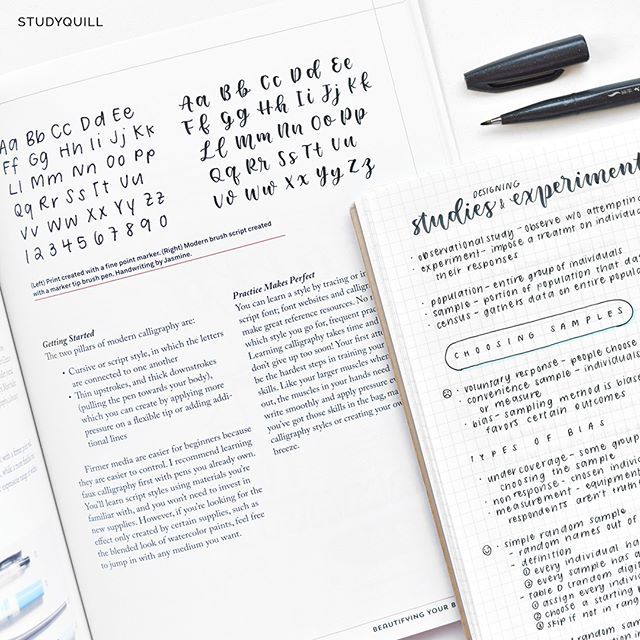 STUDYQUILL
Aa Bb Cc Dd Ee
Ff Gg Hh Ii Jj Kk
Ll Mm Nn Oo Pp
Qq Rr Ss Tt Uu
Vv Ww Xx Yy Zz
1 2 3 4 5 6 7 8 9 0
Aa Bb Cc Dd Ee
Ff Gg Hh Ii Jj Kk
Ll Mm Nn Oo Pp
Qq Rr Ss Tt Uu
Vv Ww Xx Yy Zz
(Left) Print created with a fine point marker. (Right) Modern brush script created
with a marker tip brush pen. Handwriting by Jasmine.
Getting Started
The two pillars of modern calligraphy are:
• Cursive or script style, in which the letters
are connected to one another
• Thin upstrokes, and thick downstrokes
(pulling the pen towards your body),
which you can create by applying more
pressure on a flexible tip or adding addi-
tional lines
Firmer media are easier for beginners because
they are easier to control. I recommend learning
faux calligraphy first with pens you already own.
You'll learn script styles using materials you're
familiar with, and you won't need to invest in
new supplies. However, if you're looking for the
effect only created by certain supplies, such as
the blended look of watercolor paints, feel free
to jump in with any medium you want.
Practice Makes Perfect
You can learn a style by tracing or
script font; font websites and
make great reference resources. No
which style you go for, frequent
Learning calligraphy takes time and
don't give up too soon! Your first
be the hardest steps in training your
skills. Like your larger muscles when
out, the muscles in your hands need
write smoothly and apply pressure
you've got those skills in the bag,
calligraphy styles or creating your
breeze.
BEAUTIFYING YOUR
DESIGNING
studies & experiment
· observational study - observe w/o attempting
· experiment - impose a treatment on
their responses
· population - entire group of individuals
· sample - portion of population that
· census - gathers data on entire
CHOOSING SAMPLES
· voluntary response - people choose
· convenience sample -
or measure
· bias - sampling method is
favors certain outcomes
TYPES OF BIAS
· undercoverage - some
choosing the sample
· nonresponse - chosen
· measurement -
respondents aren't
· simple random sample
- random names out of
- definition
① every individual
② every sample has
- Table D (random
① assign every
② choose a starting
③ skip if not in